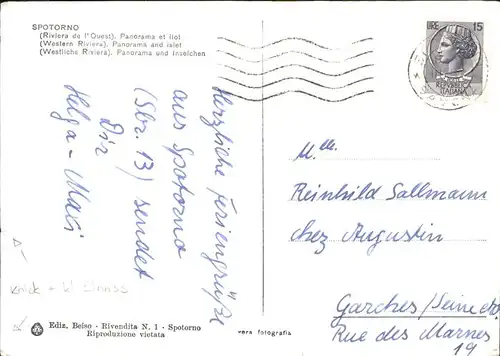 SPOTORNO
(Riviera de l'Ouest). Panorama et îlot
(Western Riviera). Panorama and islet
(Westliche Riviera). Panorama und Inselchen
LIRE 15
REPUBBLICA
ITALIANA
Herzliche Feriengrüße
aus Spotorno
(Sbr. 13) sendet
Dir
Helga-Madi
Mlle.
Reinhild Sallmann
chez Augustin
Garches/Seine et O.
Rue des Marnes
19
Knick + kl Einriss
Ediz. Belso - Rivendita N. 1 - Spotorno
Riproduzione vietata
vera fotografia